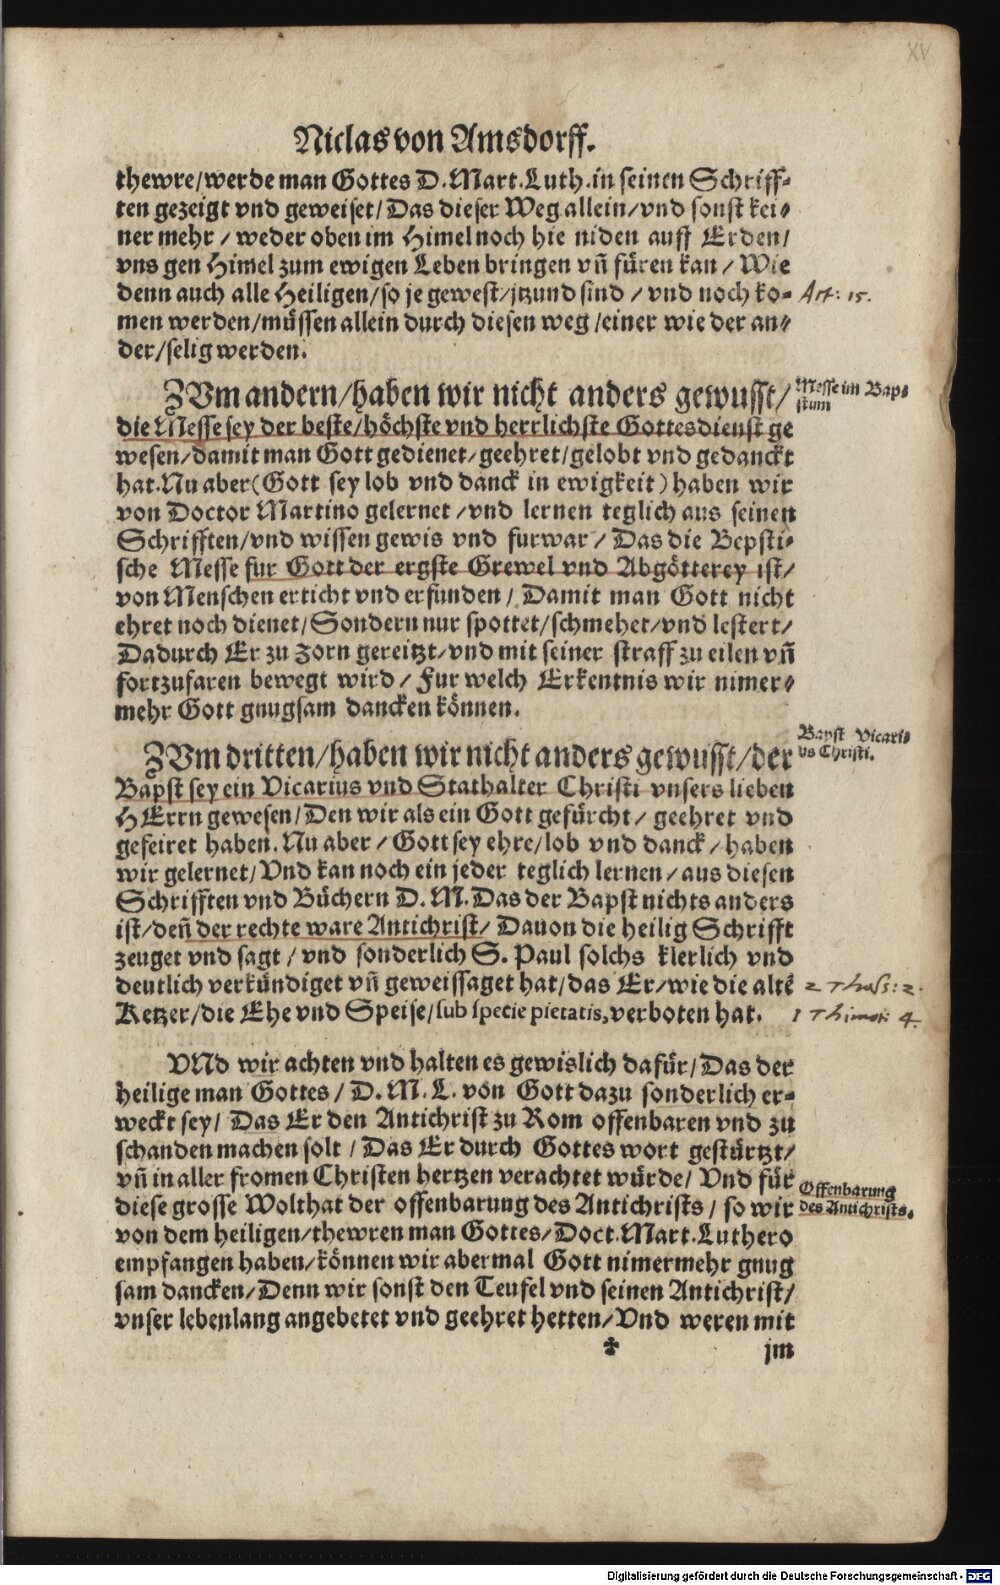 XV
Niclas von Amsdorff.
thewre/werde man Gottes D. Mart. Luth. in seinen Schriff-
ten gezeigt vnd geweiset/Das dieser Weg allein/vnd sonst kei-
ner mehr/weder oben im Himel noch hie niden auff Erden/
vns gen Himel zum ewigen Leben bringen vñ füren kan/Wie
denn auch alle Heiligen/so je gewest/jtzund sind/vnd noch ko- Art: 15.
men werden/müssen allein durch diesen weg/einer wie der an-
der/selig werden.
ZVm andern/haben wir nicht anders gewusst/ Messe im Bap-
stum
die Messe sey der beste/höchste vnd herrlichste Gottesdienst ge
wesen/damit man Gott gedienet/geehret/gelobt vnd gedanckt
hat. Nu aber (Gott sey lob vnd danck in ewigkeit) haben wir
von Doctor Martino gelernet/vnd lernen teglich aus seinen
Schrifften/vnd wissen gewis vnd furwar/Das die Bepsti-
sche Messe fur Gott der ergste Grewel vnd Abgötterey ist/
von Menschen erticht vnd erfunden/Damit man Gott nicht
ehret noch dienet/Sondern nur spottet/schmehet/vnd lestert/
Dadurch Er zu zorn gereitzt/vnd mit seiner straff zu eilen vñ
fortzufaren bewegt wird/Fur welch Erkentnis wir nimer-
mehr Gott gnugsam dancken können.
ZVm dritten/haben wir nicht anders gewusst/der Bapst Vicari-
vs Christi.
Bapst sey ein Vicarius vnd Stathalter Christi vnsers lieben
HErrn gewesen/Den wir als ein Gott gefürcht/geehret vnd
gefeiret haben. Nu aber/Gott sey ehre/lob vnd danck/haben
wir gelernet/Vnd kan noch ein jeder teglich lernen/aus diesen
Schrifften vnd Büchern D. M. Das der Bapst nichts anders
ist/deñ der rechte ware Antichrist/Dauon die heilig Schrifft
zeuget vnd sagt/vnd sonderlich S. Paul solchs klerlich vnd
deutlich verkündiget vñ geweissaget hat/das Er/wie die altẽ 2 Thess: 2.
Ketzer/die Ehe vnd Speise/sub specie pietatis, verboten hat. 1 Thimot: 4.
VNd wir achten vnd halten es gewislich dafür/Das der
heilige man Gottes/D. M. L. von Gott dazu sonderlich er-
weckt sey/Das Er den Antichrist zu Rom offenbaren vnd zu
schanden machen solt/Das Er durch Gottes wort gestürtzt/
vñ in aller fromen Christen hertzen verachtet würde/Vnd für
diese grosse Wolthat der offenbarung des Antichrists/so wir Offenbarung
des Antichrists.
von dem heiligen/thewren man Gottes/Doct. Mart. Luthero
empfangen haben/können wir abermal Gott nimermehr gnug
sam dancken/Denn wir sonst den Teufel vnd seinen Antichrist/
vnser lebenlang angebetet vnd geehret hetten/Vnd weren mit
✠ jm
Digitalisierung gefördert durch die Deutsche Forschungsgemeinschaft - DFG